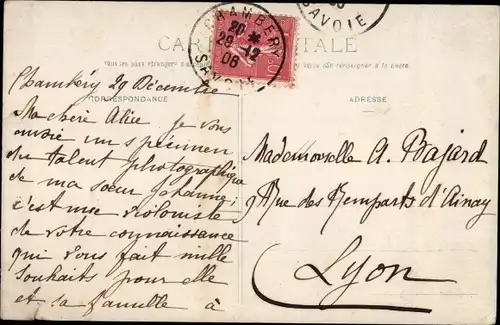 CARTE POSTALE
CHAMBERY
20 *
29 -12
06
SAVOIE
SAVOIE
Tous les pays étrangers
se renseigner à la
CORRESPONDANCE
ADRESSE
Chambéry 29 Décembre
Ma chère Alice je vous
envoie un spécimen
du talent photographique
de ma soeur
c'est une violoniste
de votre connaissance
qui vous fait mille
souhaits pour elle
et sa famille à
Mademoiselle A. Bajard
9 Rue des Remparts d'Ainay
Lyon